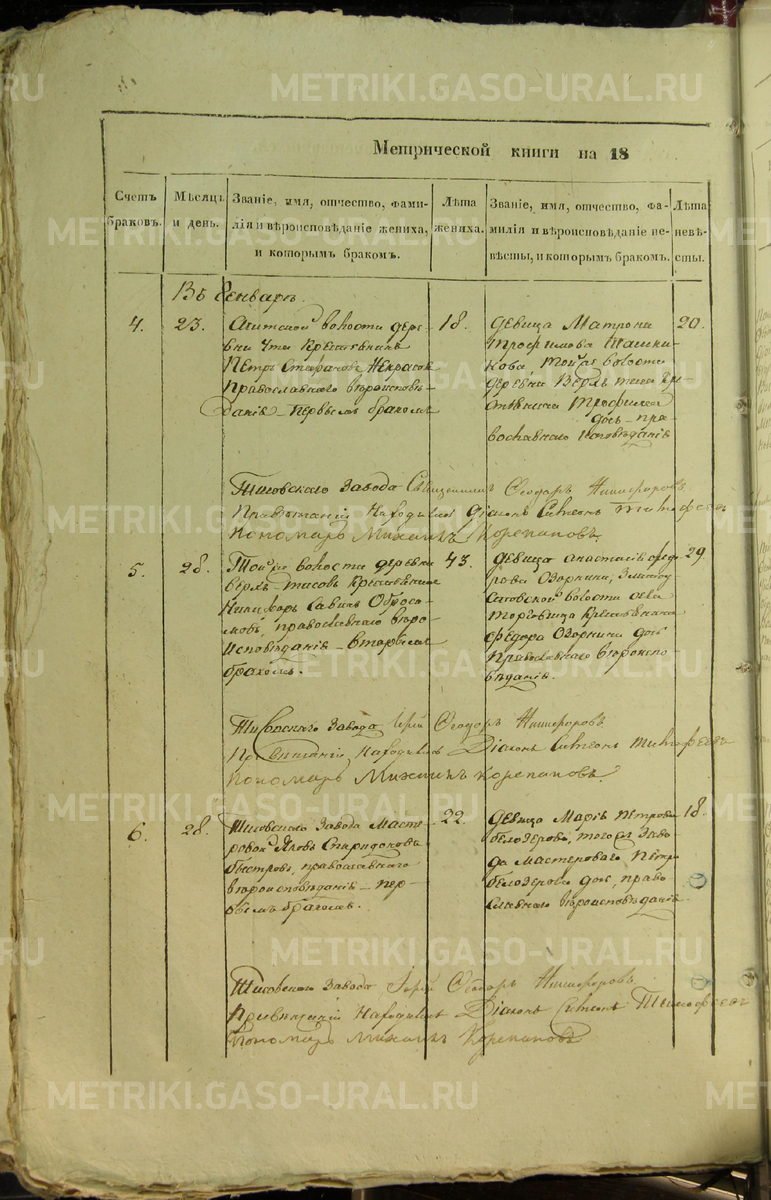 METRIKI.GASO-URAL.RU
Метрической книги на 18
Счетъ браковъ.
Мѣсяцъ и день.
Званіе, имя, отчество, фами-
лія и вѣроисповѣданіе жениха,
и которымъ бракомъ.
Лѣта жениха.
Званіе, имя, отчество, фа-
милія и вѣроисповѣданіе не-
вѣсты, и которымъ бракомъ.
Лѣта невѣ-
сты.
Въ Генварѣ.
4.
23.
волости дере-
вни Крестьянинъ
Петръ
Православнаго вѣроисповѣ-
данія первымъ бракомъ
18.
Девица Матрона
Трофимова
той же волости
деревни Верхъ
Трофима
дочь, пра-
вославнаго исповѣданія
20.
Тисовскаго завода Священникъ Ѳеодоръ Никифоровъ
При вѣнчаніи находились Діаконъ Симеонъ Тимофеевъ
Пономарь Михаилъ Корепановъ
5.
28.
Той же волости деревни
Верхъ-Тисовъ Крестьянинъ
Никифоръ Савинъ Обросо-
мовъ, православнаго вѣро-
исповѣданія вторымъ
бракомъ.
43.
Девица Анастасія Федо-
рова
волости села
Торговища Крестьянина
Федора дочь
Православнаго вѣроиспо-
вѣданія.
29
Тисовскаго Завода Іерей Ѳеодоръ Никифоровъ
При вѣнчаніи находились Діаконъ Симеонъ Тимофеевъ
Пономарь Михаилъ Корепановъ
6.
28.
Тисовскаго Завода Масте-
ровой Яковъ Спиридоновъ
Быстровъ, православнаго
вѣроисповѣданія пер-
вымъ бракомъ.
22.
Девица Марія Петрова
Белозерова, того же Заво-
да мастероваго Петра
Белозерова дочь, право-
славнаго вѣроисповѣданія
18.
Тисовскаго Завода Іерей Ѳеодоръ Никифоровъ
При вѣнчаніи находились Діаконъ Симеонъ Тимофеевъ
Пономарь Михаилъ Корепановъ